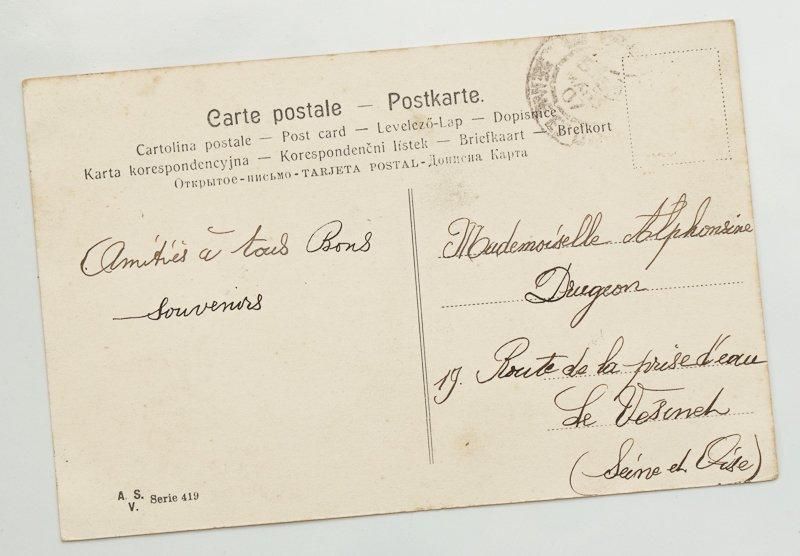 Carte postale — Postkarte.
Cartolina postale — Post card — Levelező-Lap — Dopisnice
Karta korespondencyjna — Korespondenční lístek — Briefkaart — Brefkort
Открытое-письмо - TARJETA POSTAL - Дописна Карта
Amitiés à tous Bons
souvenirs
Mademoiselle Alphonsine
Drugeon
19. Route de la prise d'eau
Le Vésinet
(Seine et Oise)
A. S.
V. Serie 419